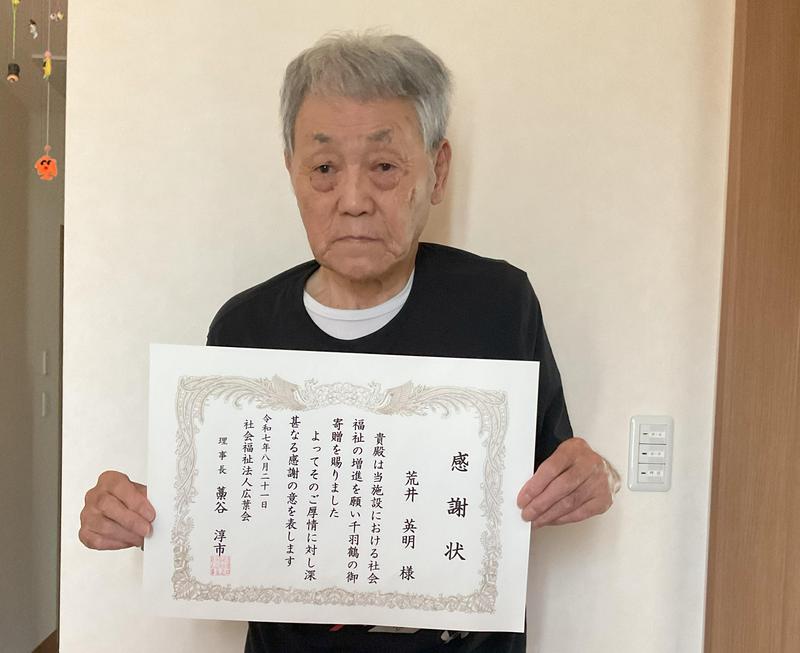 感謝状
荒井 英明 様
貴殿は当施設における社会
福祉の増進を願い千羽鶴の御
寄贈を賜りました
よってそのご厚情に対し深
甚なる感謝の意を表します
令和七年八月二十一日
社会福祉法人広葉会
理事長 藁谷 淳市